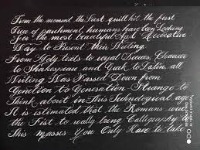 From the moment the first quill hit the first
Piece of parchment, humanity have been Looking
For the most beautiful and Decorative
Way to Present their Writing.
From Holy texts to royal Decrees, Chaucer
to Shakespeare and Greek to Latin all
Writing Was Passed Down from
Generation to Generation Strange to
Think about in this Technological age
It is estimated that the Romans were
the First to really bring Calligraphy to
the masses You Only Have to take